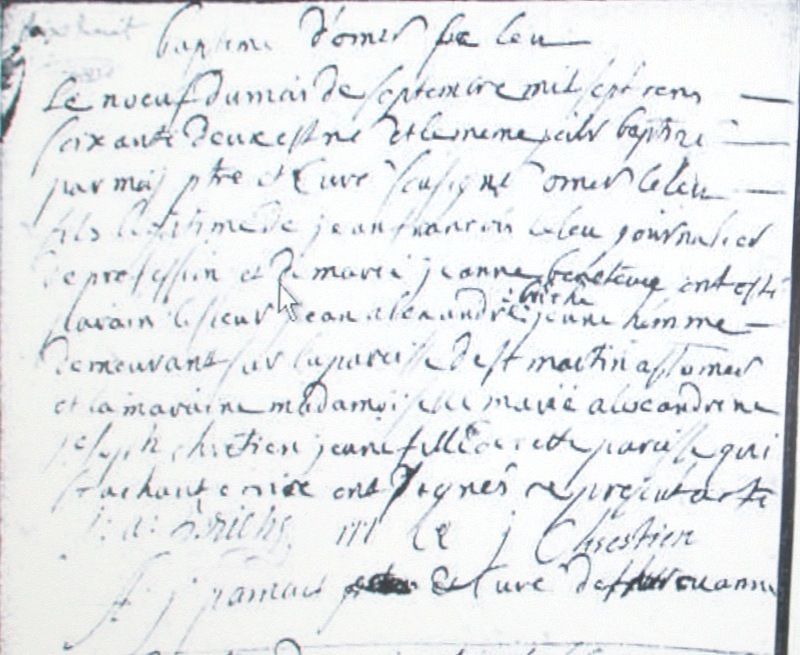 bapteme d'omer le leu
Le noeuf du mois de septembre mil sept cens
soixante deux est né et le meme jour baptizé
par moi ptre et Curé sousigné omer le leu
fils legitime de jean francois le leu journalier
de profession et de marie jeanne ont esté
parain le sieur jean alexandre briche jeune homme
demeurant sur la paroisse de st martin a st omer
et la maraine madamoiselle marie alexandrine
joseph chretien jeune fille de cette paroisse qui
sachant ecrire ont signés ce present acte
j: a: Briche m a j Chrestien
Curé de